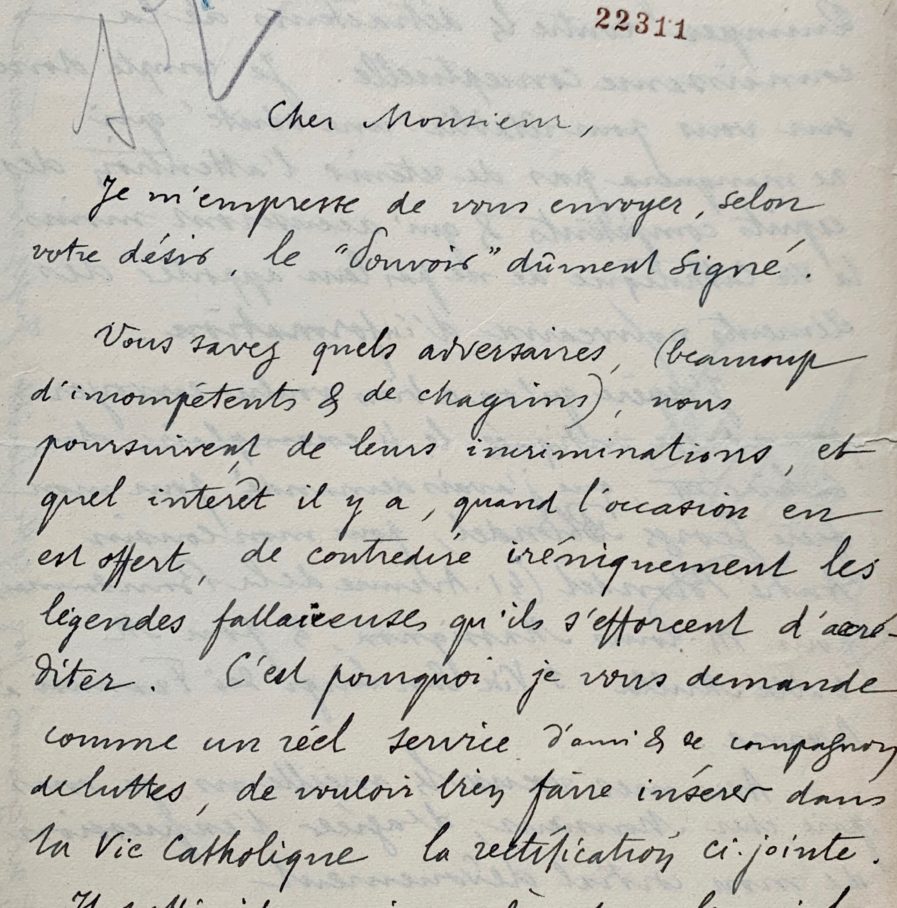 22311
Cher Monsieur,
Je m'empresse de vous envoyer, selon
votre désir, le "Pouvoir" dûment signé.
Vous savez quels adversaires, (beaucoup
d'incompétents & de chagrins), nous
poursuivent de leurs incriminations, et
quel intérêt il y a, quand l'occasion en
est offert, de contredire iréniquement les
légendes fallacieuses qu'ils s'efforcent d'accré-
diter. C'est pourquoi je vous demande
comme un réel service d'ami & de compagnon
de luttes, de vouloir bien faire insérer dans
la Vie Catholique la rectification ci-jointe.